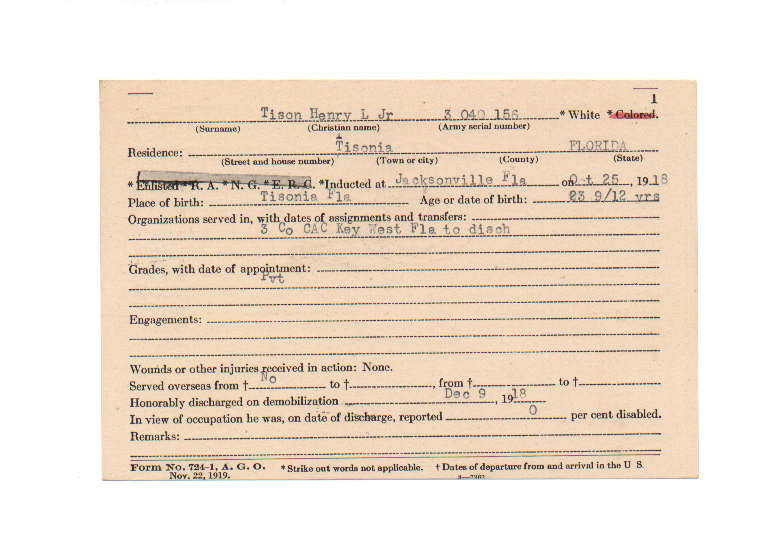 1
Tison Henry L Jr 3 040 156 * White * Colored.
(Surname) (Christian name) (Army serial number)
Residence: Tisonia FLORIDA
(Street and house number) (Town or city) (County) (State)
* Enlisted * R. A. * N. G. * E. R. C. *Inducted at Jacksonville Fla on O t 25 , 1918
Place of birth: Tisonia Fla Age or date of birth: 23 9/12 yrs
Organizations served in, with dates of assignments and transfers:
3 Co CAC Key West Fla to disch
Grades, with date of appointment:
Pvt
Engagements:
Wounds or other injuries received in action: None.
Served overseas from † No to †, from † to †
Honorably discharged on demobilization Dec 9 , 1918
In view of occupation he was, on date of discharge, reported 0 per cent disabled.
Remarks:
Form No. 724-1, A. G. O. * Strike out words not applicable. † Dates of departure from and arrival in the U S.
Nov. 22, 1919.